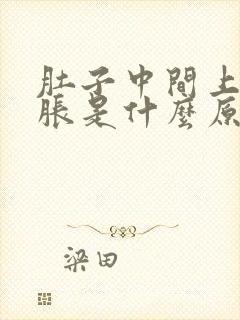 肚子中間上
脹是什麼原
梁田